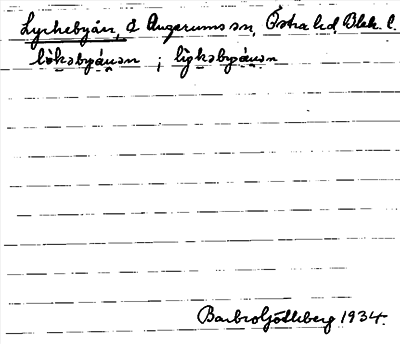 Lyckebyån, å Augerums sn, Östra hd, Blek. l.
lȯ̀kəbyáu̯ən ; lỳkəbyáu̯ən
Barbro Götlberg 1934.